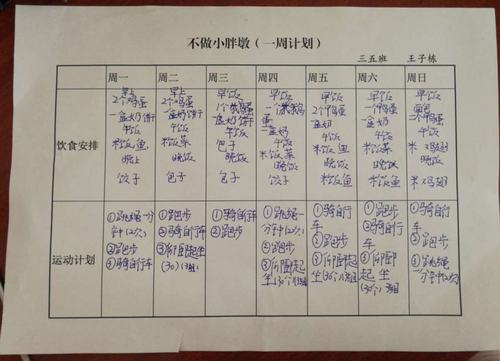 不做小胖墩（一周计划）
三五班 王子栋
周一 周二 周三 周四 周五 周六 周日
饮食安排
早上
2个鸡蛋
一盒奶 饼干
午饭
米饭 鱼
晚上
饺子
早上
2个鸡蛋
一盒奶 饼干
午饭
米饭菜
晚饭
包子
早饭
1个鹅蛋
一盒奶 饼干
午饭
包子
晚饭
包子
早饭
一盒奶
午饭
米饭菜
晚饭
饺子
早饭
2个鸡蛋
一盒奶
午饭
米饭鱼
晚饭
米饭鱼
早饭
一盒奶
午饭
米饭菜
晚饭
米饭鱼
早饭
午饭
米
晚饭
米
运动计划
①跳绳一分
钟(2次)
②跑步
③骑自行车
①跑步
②骑自行车
③仰卧起坐
(30)(3组)
①骑自行车
②跑步
①跳绳一
分钟(2次)
②跑步
③仰卧起
坐(30个)3组
①骑自行
车
②跑步
③仰卧起
坐(30个)3组
①跑步
②骑自行
车
③仰卧
起坐
(30个)3组
①骑自行
车
②跑步
③跳绳
一分钟(2次)